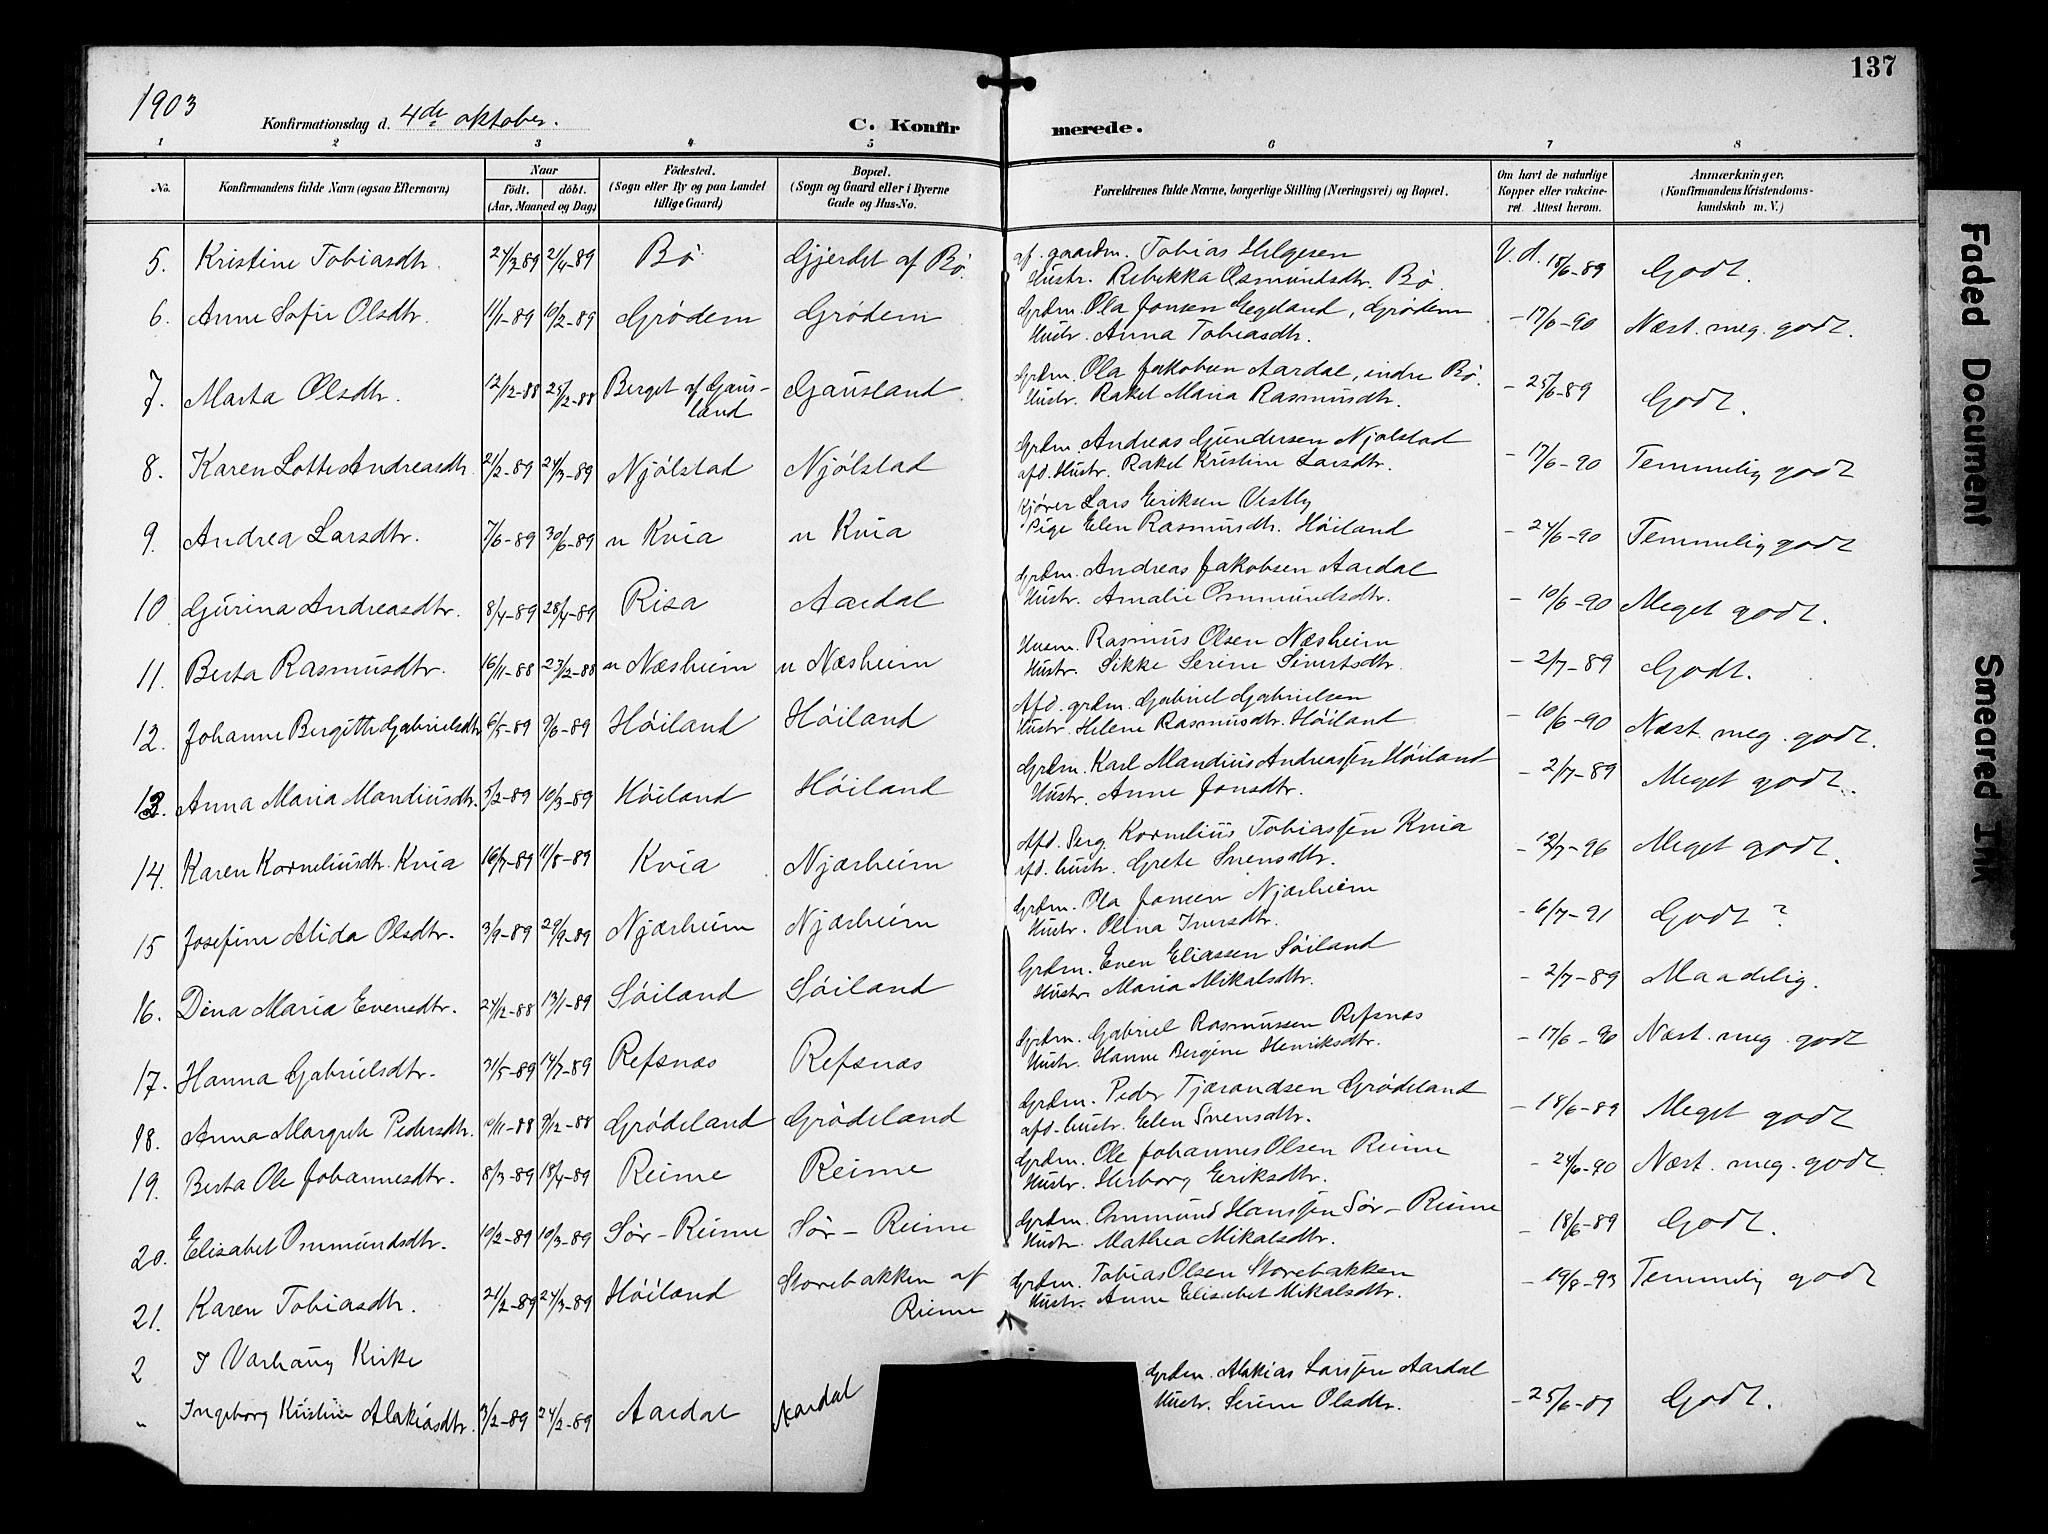 137
1903
Konfirmationsdag d. 4de oktober. C. Konfirmerede.
1 2 3 4 5 6 7 8
No. Konfirmandens fulde Navn (ogsaa Efternavn) Naar födt. döbt. (Aar, Maaned og Dag) Födested. (Sogn eller By og paa Landet tillige Gaard) Bopæl. (Sogn og Gaard eller i Byerne Gade og Hus-No. Forældrenes fulde Navne, borgerlige Stilling (Næringsvei) og Bopæl. Om havt de naturlige Kopper eller vakcineret. Attest herom. Anmærkninger. (Konfirmandens Kristendomskundskab m. V.)
5. Kristine Tobiasdtr. 89 21/4-89 Bø Gjerdet af Bø. af. gaardm. Tobias Helgesen
Hustr. Rebekka Osmundsdtr. Bø. V. d. 15/6-89 Godt.
6. Anne Sofie Olsdtr. 11/1-89 10/2-89 Grødem Grødem Grdm. Ola Jonsen Egeland, Grødem
Hustr. Anna Tobiasdtr. -17/6-90 Næst. meg. godt.
7. Marta Olsdtr. 12/12-88 25/12-88 Berget af Gausland Gausland Grdm. Ola Jakobsen Aardal, indre Bø.
Hustr. Rakel Maria Rasmusdtr. -25/6-89 Godt.
8. Karen Lotte Andreasdtr. 21/2-89 24/3-89 Njølstad Njølstad Grdm. Andreas Gundersen Njølstad
afd. Hustr. Rakel Kristine Larsdtr. -17/6-90 Temmelig godt
9. Andrea Larsdtr. 7/6-89 30/6-89 n Kvia n Kvia Kjører Lars Eriksen Vestly
Pige Elen Rasmusdtr. Høiland -24/6-90 Temmelig godt
10 Gurina Andreasdtr. 8/4-89 28/4-89 Risa Aardal Grdm. Andreas Jakobsen Aardal
Hustr. Amalie Osmundsdtr. -10/6-90 Meget godt.
11. Berta Rasmusdtr. 16/11-88 23/12-88 n Næsheim n Næsheim Huem. Rasmus Olsen Næsheim
Hustr. Sikke Serine Sivertsdtr. -2/7-89 Godt.
12. Johanne Bergitte Gabrielsdtr. 6/5-89 9/6-89 Høiland Høiland Afd. grdm. Gabriel Gabrielsen
Hustr. Helene Rasmusdtr. Høiland -10/6-90 Næst. meg. godt.
13. Anna Maria Mandiusdtr. 5/2-89 10/3-89 Høiland Høiland Grdm. Karl Mandius Andreassen Høiland
Hustr. Anne Jonsdtr. -2/7-89 Meget godt.
14. Karen Korneliusdtr. Kvia 16/7-89 11/8-89 Kvia Njærheim Afd. Serg. Kornelius Tobiassen Kvia
afd. hustr. Grete Svensdtr. -12/7-96 Meget godt.
15 Josefine Alida Olsdtr. 3/9-89 29/9-89 Njærheim Njærheim Grdm. Ola Jonsen Njærheim
Hustr. Olina Iversdtr. -6/7-91 Godt?
16. Dina Maria Evensdtr. 24/12-88 13/1-89 Søiland Søiland Grdm. Even Eliassen Søiland
Hustr. Maria Mikalsdtr. -2/7-89 Maadelig.
17. Hanna Gabrielsdtr. 31/5-89 14/7-89 Refsnæs Refsnæs Grdm. Gabriel Rasmussen Refsnæs
Hustr. Hanne Bergine Henriksdtr. -17/6-90 Næst. meg. godt
18. Anna Margrete Pedersdtr. 10/11-88 9/12-88 Grødeland Grødeland Grdm. Peder Tjærandsen Grødeland
afd-hustr. Elen Svensdtr. -18/6-89 Meget godt
19. Berta Ole Johannesdtr. 8/3-89 18/4-89 Reime Reime Grdm. Ole Johannes Olsen Reime
Hustr. Herborg Eriksdtr. -24/6-90 Næst. meg. godt
20. Elisabet Ommundsdtr. 10/2-89 10/3-89 Sør-Reime Sør-Reime Grdm. Ommund Hanssen Sør-Reime
Hustr. Mathea Mikalsdtr. -18/6-89 Godt.
21. Karen Tobiasdtr. 21/2-89 24/3-89 Høiland Storebakken af Reime Grdm. Tobias Olsen Storebakken
Hustr. Anne Elisabet Mikalsdtr. -19/8-93 Temmelig godt
2 I Varhaug Kirke
" Ingeborg Kristine Alakiasdtr. 3/2-89 24/2-89 Aardal Aardal Grdm. Alakias Larssen Aardal
Hustr. Serine Olsdtr. -25/6-89 Godt.
Faded Document
Smeared Ink